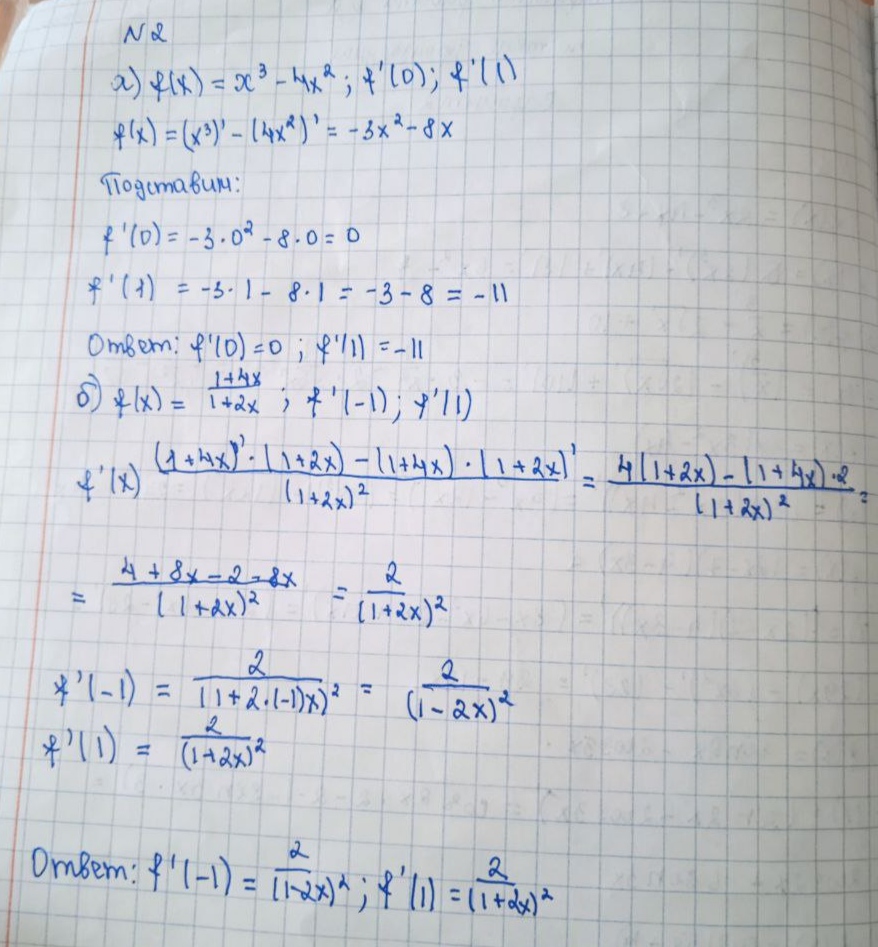 N2
а) f(x) = x³ - 4x² ; f'(0) ; f'(1)
f(x) = (x³)' - (4x²)' = -3x² - 8x
Подставим:
f'(0) = -3·0² - 8·0 = 0
f'(1) = -3·1 - 8·1 = -3 - 8 = -11
Ответ: f'(0) = 0 ; f'(1) = -11
б) f(x) = (1+4x)/(1+2x) ; f'(-1) ; f'(1)
f'(x) ((1+4x)'·(1+2x) - (1+4x)·(1+2x)')/(1+2x)² = (4(1+2x) - (1+4x)·2)/(1+2x)² =
= (4+8x-2-8x)/(1+2x)² = 2/(1+2x)²
f'(-1) = 2/(1+2·(-1)x)² = 2/(1-2x)²
f'(1) = 2/(1+2x)²
Ответ: f'(-1) = 2/(1-2x)² ; f'(1) = 2/(1+2x)²